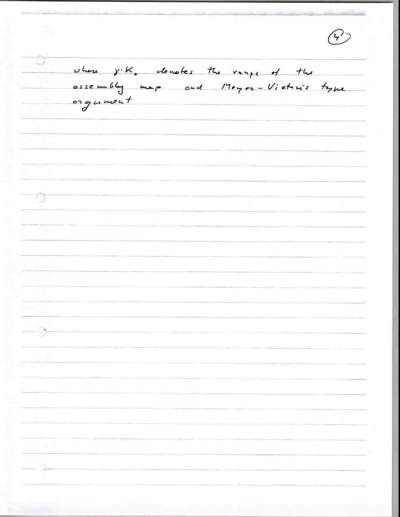 4
where γ.K. denotes the range of the
assembly map and Meyer-Vietoris type
argument